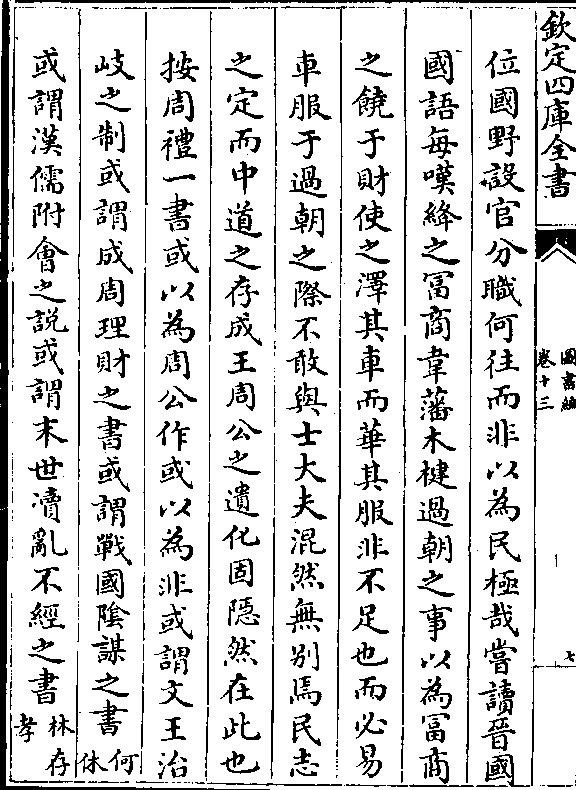 欽定四庫全書
圖書編
卷十三
七
位國野設官分職何往而非以為民極哉嘗讀晉國
國語每嘆絳之冨商韋藩木楗過朝之事以為冨商
之饒于財使之澤其車而華其服非不足也而必易
車服于過朝之際不敢與士大夫混然無別焉民志
之定而中道之存成王周公之遺化固隱然在此也
按周禮一書或以為周公作或以為非或謂文王治
岐之制或謂成周理財之書或謂戰國陰謀之書何休
或謂漢儒附會之説或謂末世凟亂不經之書林存孝